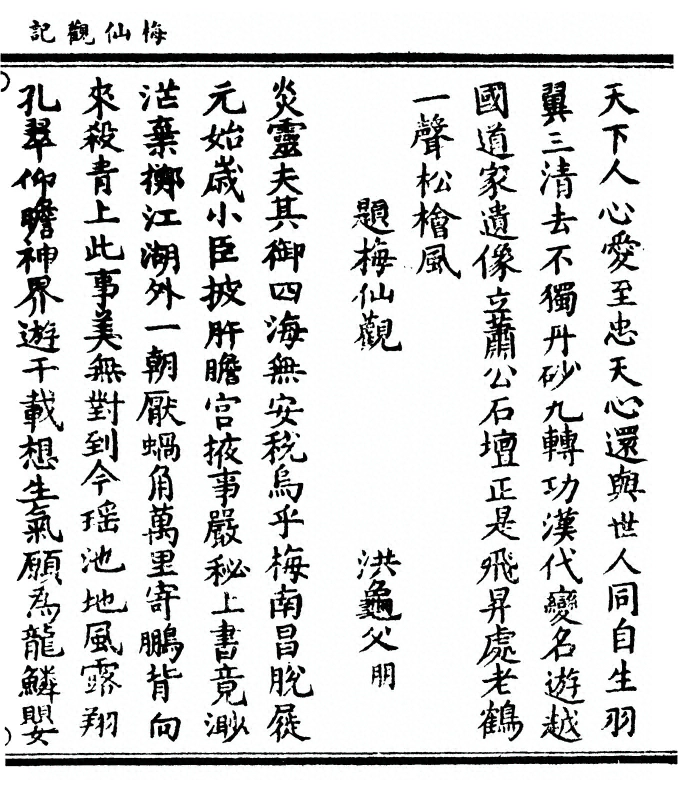 梅仙觀記
天下人心愛至忠天心還與世人同自生羽
翼三清去不獨丹砂九轉功漢代變名遊越
國道家遺像立蕭公石壇正是飛昇處老鶴
一聲松檜風
題梅仙觀 洪龜父 朋
炎靈夫其御四海無安稅烏乎梅南昌脫屣
元始歲小臣披肝膽宮掖事嚴秘上書竟渺
茫棄擲江湖外一朝厭蝸角萬里寄鵬背向
來殺青上此事美無對到今瑶池地風露翔
孔翠仰瞻神界遊千載想生氣願為龍鱗嬰